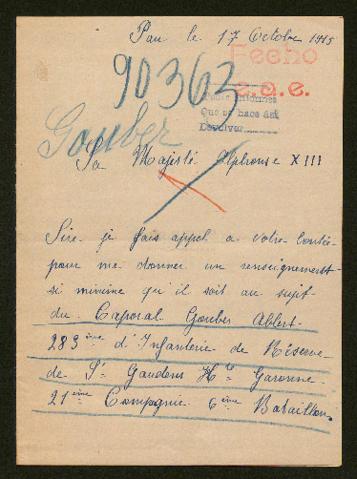 Pau le 17 Octobre 1915
Fecho
e.a.e.
90362
Que se hace así
Devolver
Gouber
Sa Majesté Alphonse XIII
Sire je fais appel a votre bonté
pour me donner un renseignement
si minime qu'il soit au sujet
du Caporal Gouber Albert
283ème d'Infanterie de Réserve
de St Gaudens Hte Garonne
21ème Compagnie 6ème Bataillon.